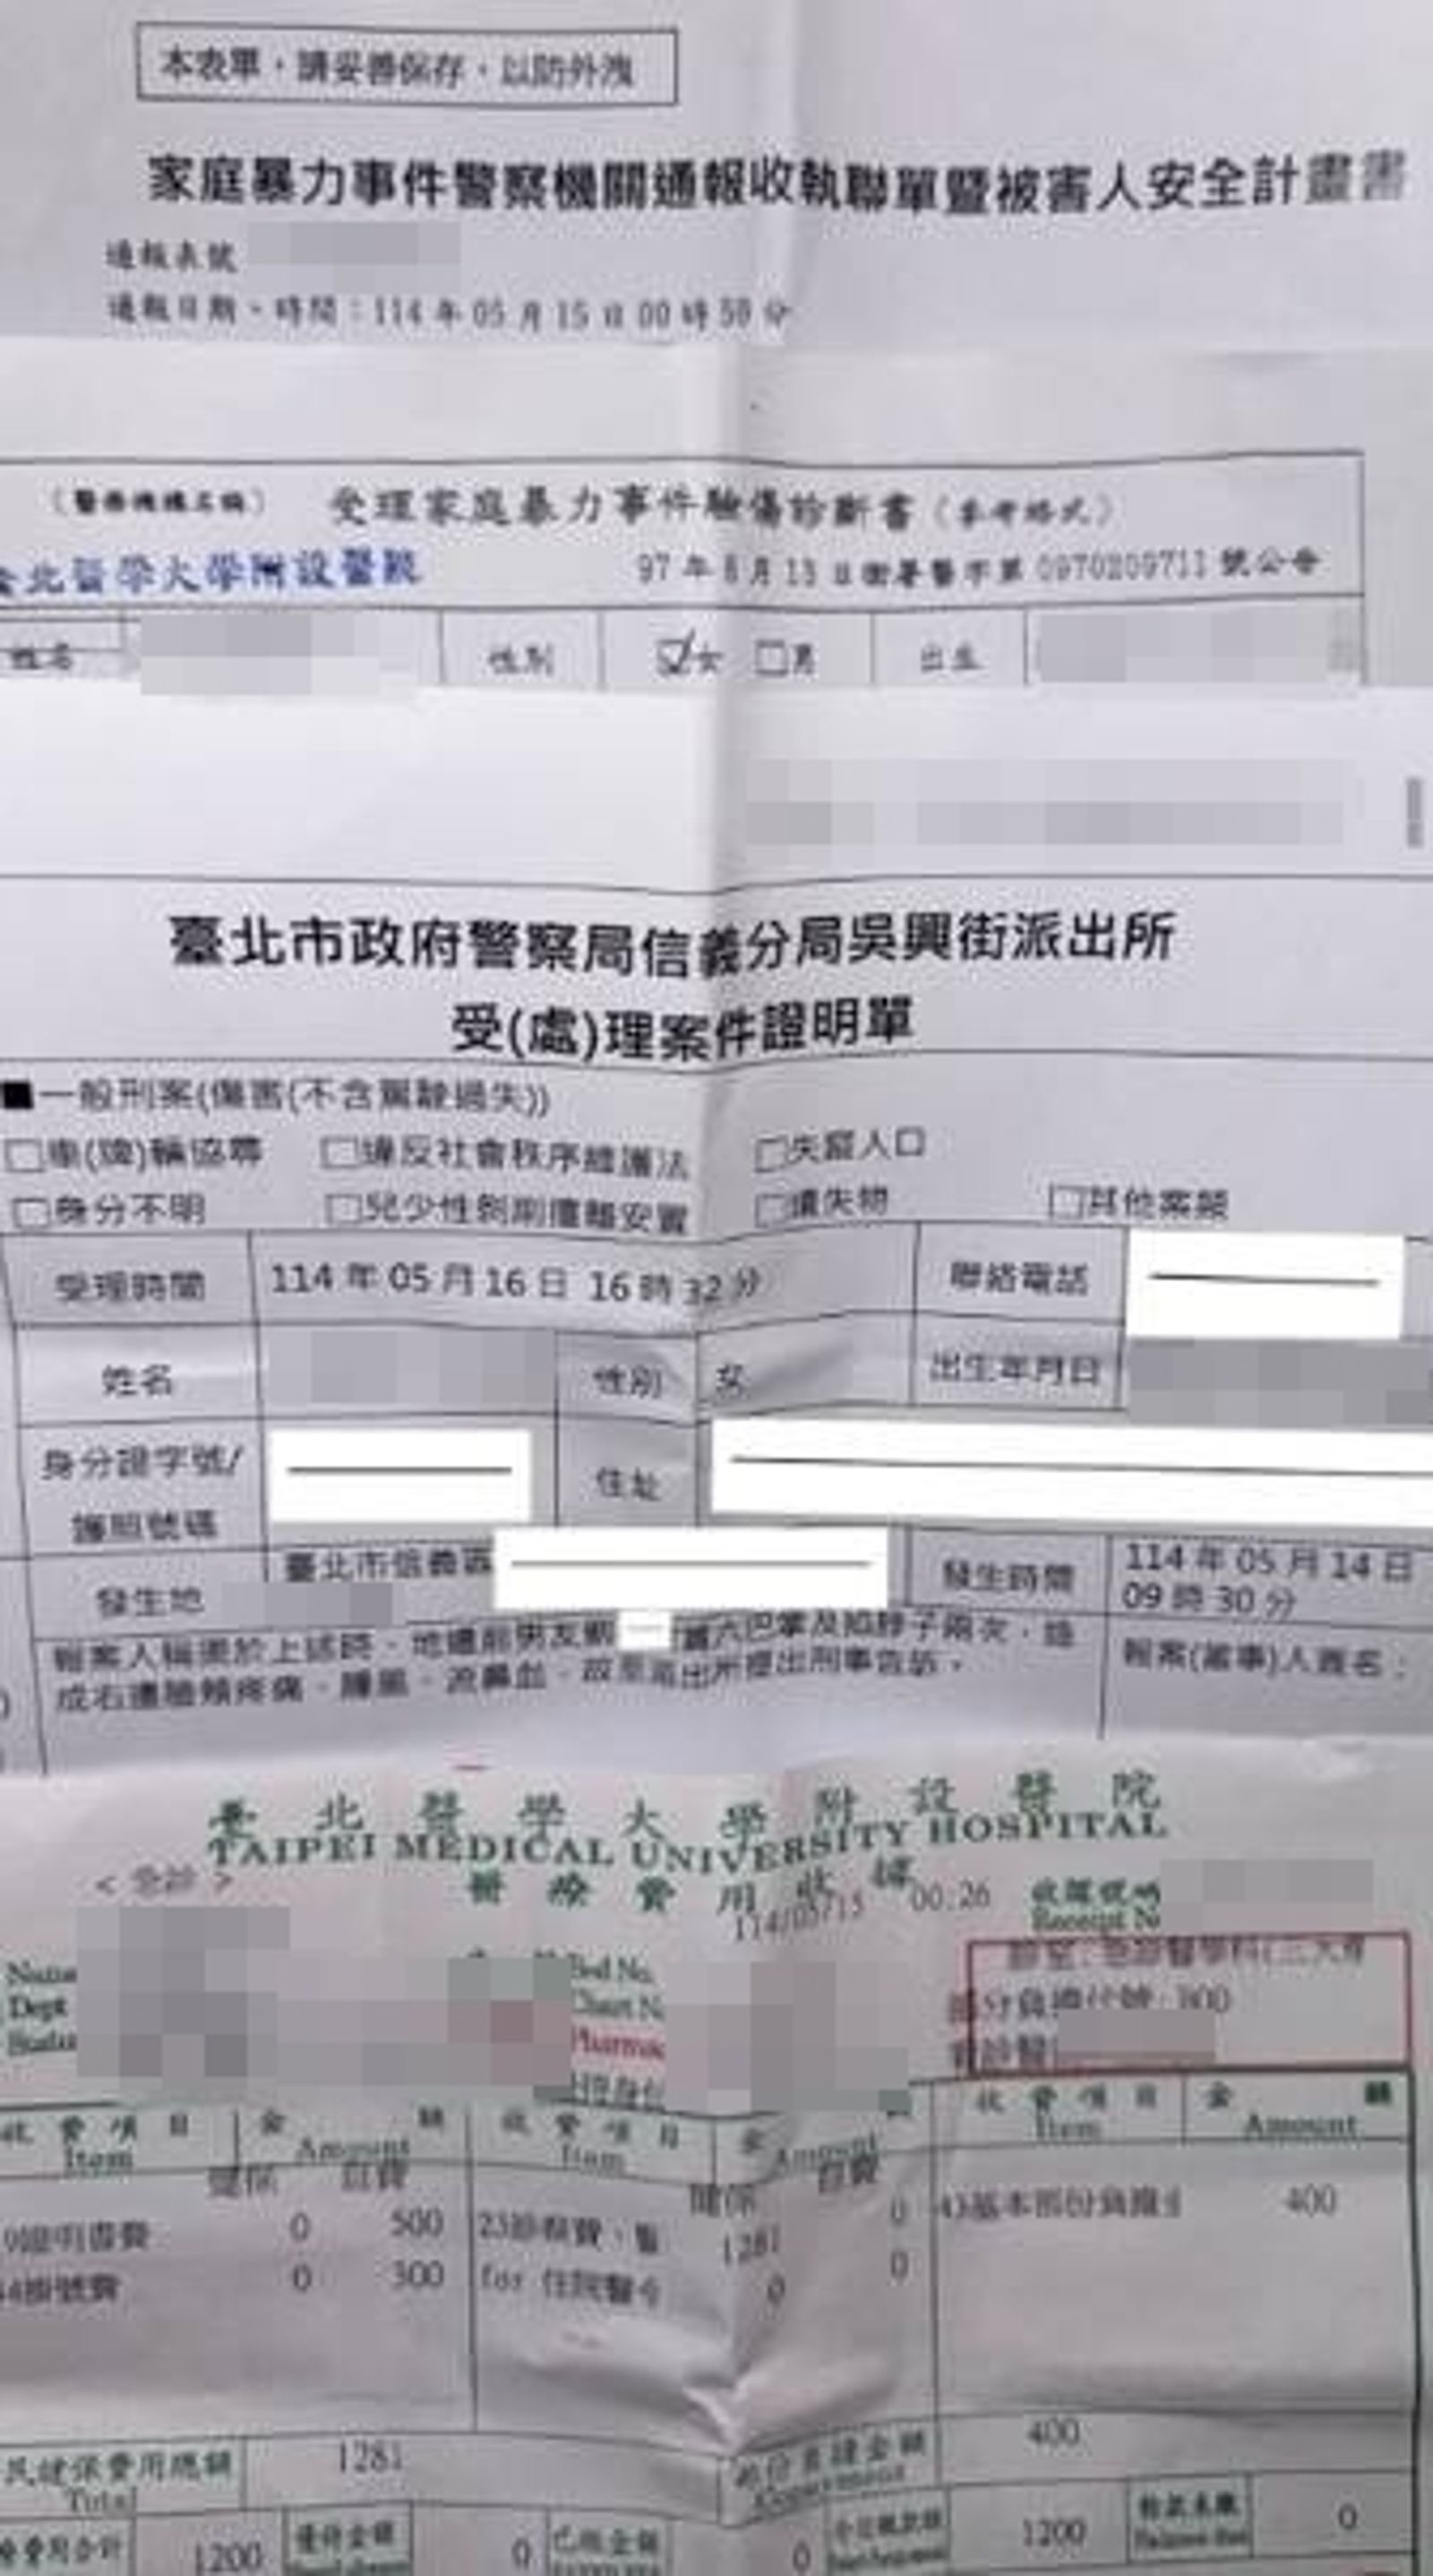 本表單，請妥善保存，以防外洩
家庭暴力事件警察機關通報收執聯單暨被害人安全計畫書
通報表號
通報日期、時間：114年05月15日00時59分
（醫療機構名稱） 受理家庭暴力事件驗傷診斷書（參考格式）
北醫學大學附設醫院 97年8月13日衛署醫字第0970209711號公告
姓名 性別 ☑女 □男 出生
臺北市政府警察局信義分局吳興街派出所
受(處)理案件證明單
■一般刑案(傷害(不含駕駛過失))
□車(牌)輛協尋 □違反社會秩序維護法 □失蹤人口
□身分不明 □兒少性剝削擅離安置 □遺失物 □其他案類
受理時間 114年05月16日 16時32分 聯絡電話
姓名 性別 女 出生年月日
身分證字號/ 住址
護照號碼
發生地 臺北市信義區 發生時間 114年05月14日
09時30分
報案人稱渠於上述時、地遭前男友劉 巴掌及掐脖子兩次，造
成右邊臉頰疼痛、腫脹、流鼻血，故至派出所提出刑事告訴。 報案(當事)人簽名：
臺北醫學大學附設醫院
TAIPEI MEDICAL UNIVERSITY HOSPITAL
<急診> 醫療費用收據
114/05/15 00:26 收據號碼
Receipt N
Name Bed No. 診室:急診醫學科(三大樓
Dept Chart N 部分負擔代號:800
Status Pharmac 看診醫
收費項目 金額 收費項目 金額 收費項目 金額
Item Amount Item Amount Item Amount
健保 自費 健保 自費
證明書費 0 500 23診察費、醫 1281 0 43基本部份負擔金 400
掛號費 0 300 for 住院醫令 0 0
民健保費用總額 1281 部份負擔金額 400
Total
費用合計 1200 優待金額 0 已繳金額 0 今日繳款額 1200 0